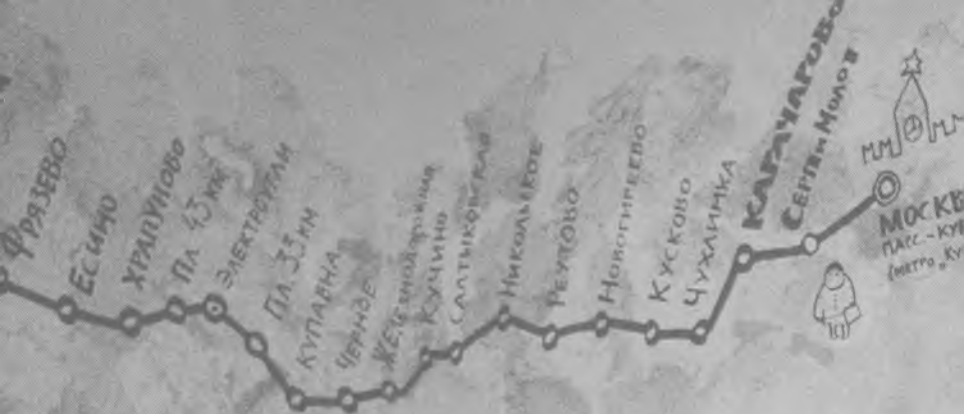 Фрязево
Есино
Храпуново
Пл 43 км
Электроугли
Пл. 33 км
Купавна
Черное
Железнодорожная
Кучино
Салтыковская
Никольское
Реутово
Новогиреево
Кусково
Чухлинка
Карачарово
Серп и Молот
Москв
пасс.-кур
(метро „Ку